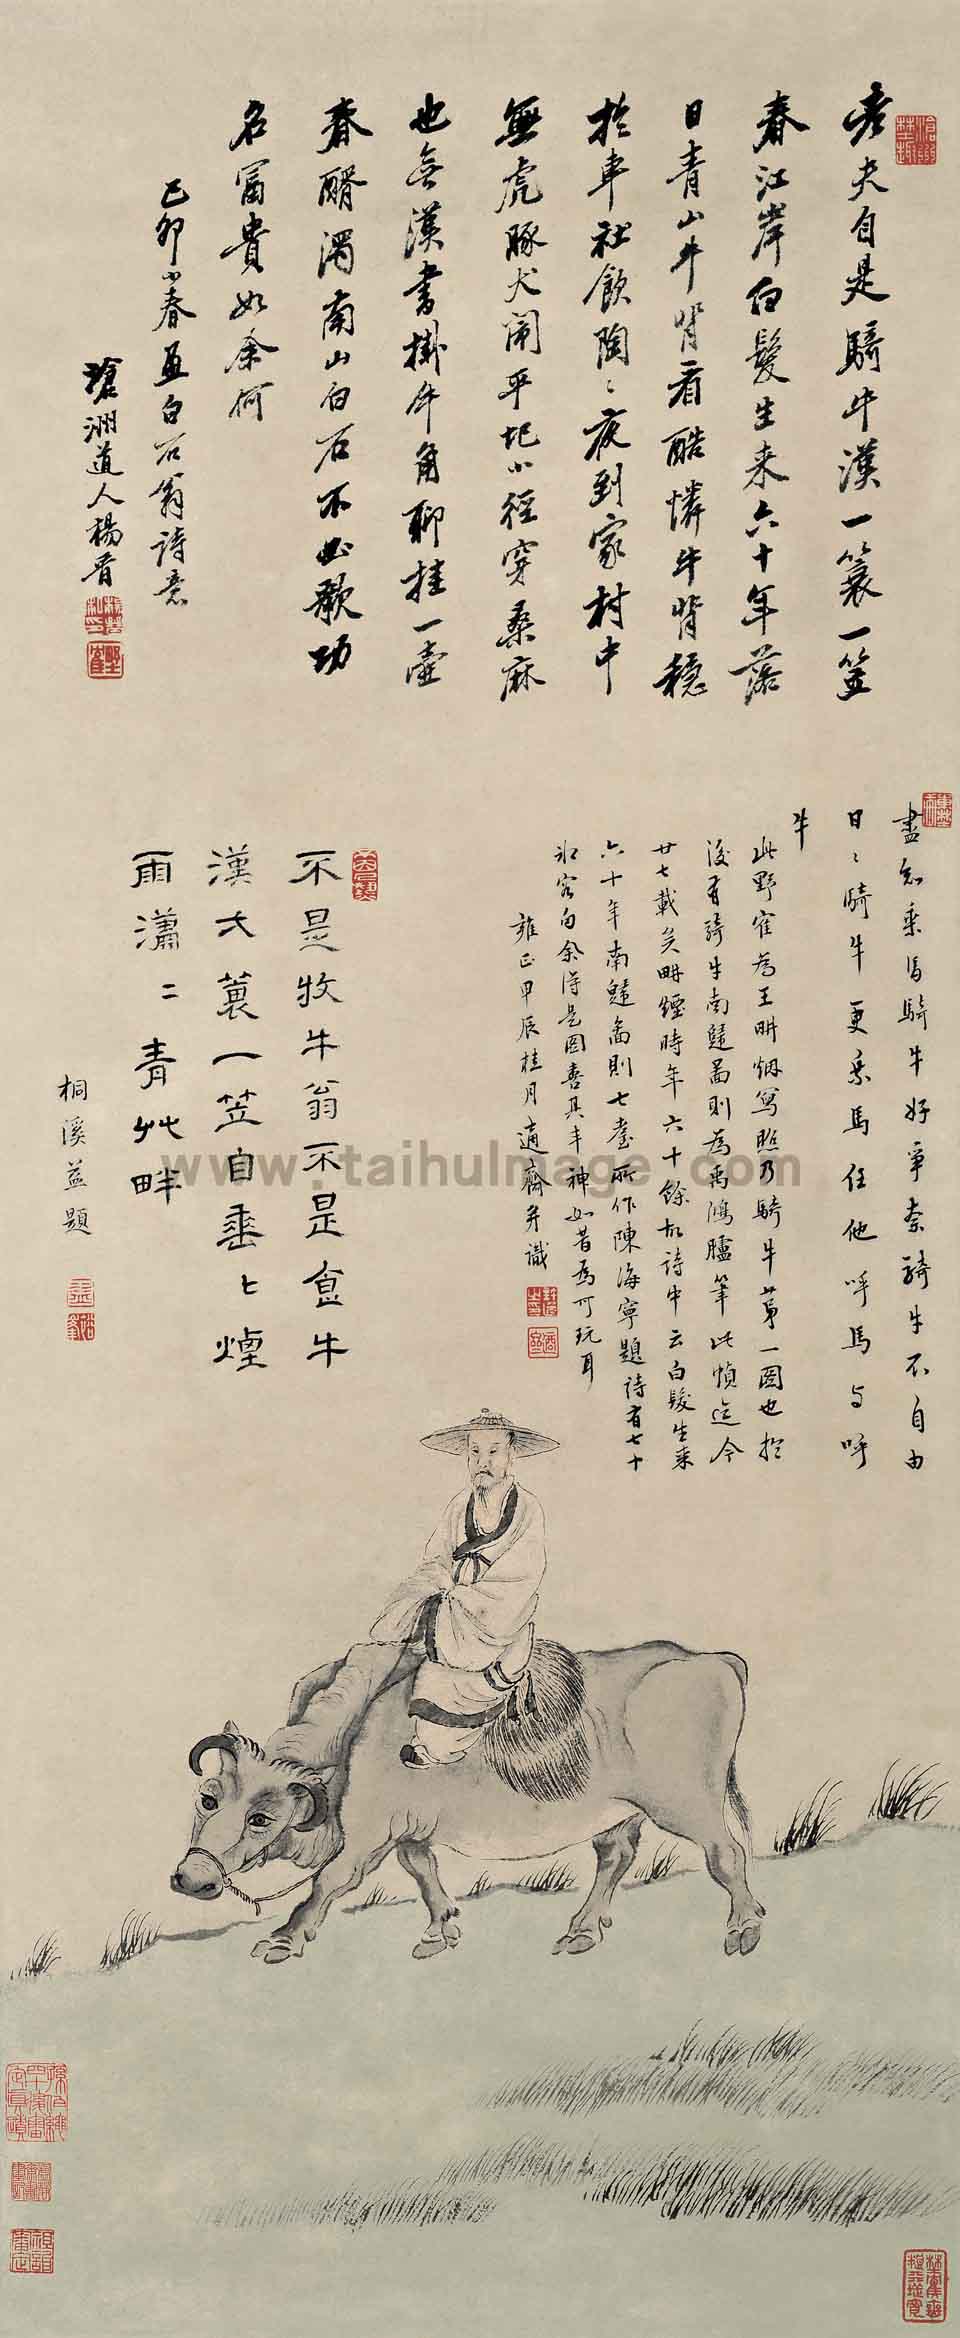 老夫自是騎牛漢一簑一笠
春江岸白髮生来六十年落
日青山牛背看酷憐牛背穩
於車社飲陶〻夜到家村中
無虎豚犬鬧平圯小徑穿桑麻
也無漢書掛牛角聊挂一壺
春醑濁南山白石不必歌功
名富貴如余何
己卯小春画白石翁詩意
滄洲道人楊晋
盡知乘馬騎牛好爭奈騎牛不自由
日〻騎牛更乘馬任他呼馬与呼
牛
此野崔為王畊烟写照乃騎牛第一圖也於
後有騎牛南歸啚則為禹鴻臚筆此幀迄今
廿七載矣畊煙時年六十餘故詩中云白髮生来
六十年南歸啚則七耋所作陳海寧題詩有七十
客向余得是圖喜其丰神如昔為可玩耳
雍正甲辰桂月適齋并識
不是牧牛翁不是食牛
漢大蓑一笠自垂〻煙
雨瀟〻青艸畔
桐溪益題
www.taihuImage.com